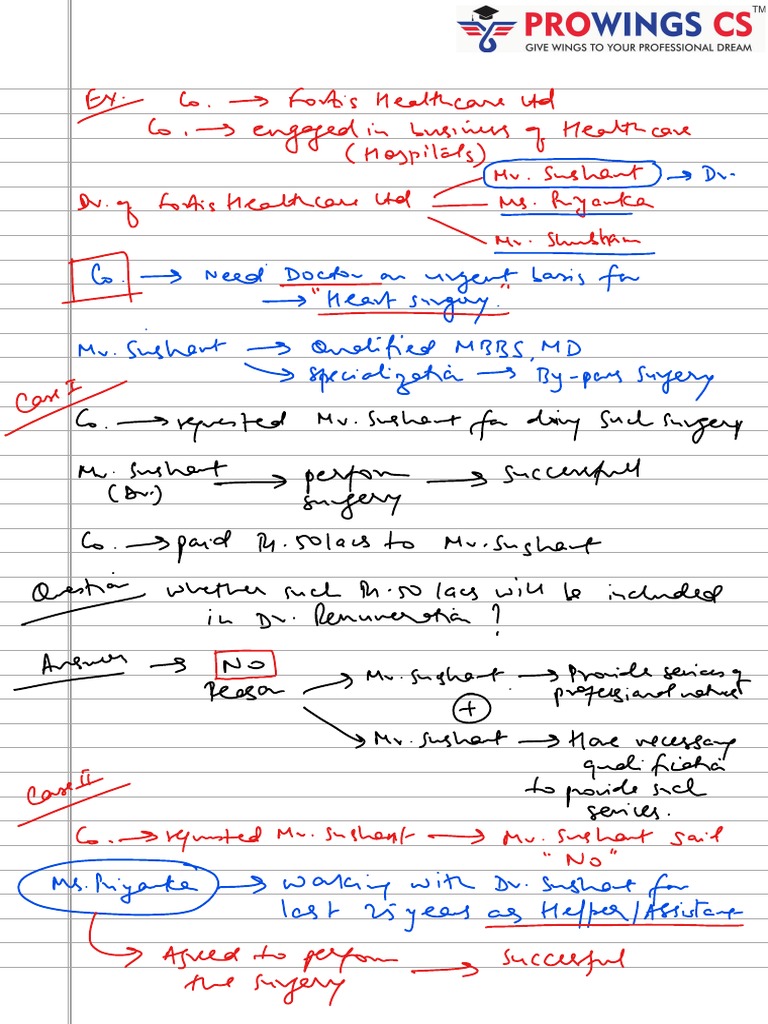 PROWINGS CS™
GIVE WINGS TO YOUR PROFESSIONAL DREAM
Ex. Co. → Fortis Healthcare Ltd
Co. → engaged in business of Healthcare
(Hospitals)
Mr. Sushant → Dr.
Dr. of Fortis Healthcare Ltd — Ms. Priyanka
Mr. Shubham
Co. → Need Doctor on urgent basis for
→ "Heart surgery."
Mr. Sushant → Qualified MBBS, MD
→ specialization → By-pass surgery
Case I
Co. → requested Mr. Sushant for doing such surgery
Mr. Sushant → perform → successfull
(Dr.) surgery
Co. → paid Rs. 50 lacs to Mr. Sushant
Question whether such Rs. 50 lacs will be included
in Dr. Remuneration?
Answer → NO
Reason → Mr. Sushant → Provide services of
professional nature
+
→ Mr. Sushant → Have necessary
qualification
to provide such
services.
Case II
Co. → requested Mr. Sushant → Mr. Sushant said
"NO"
Ms. Priyanka → working with Dr. Sushant for
last 25 years as Helper/Assistance
→ Agreed to perform → successful
the surgery